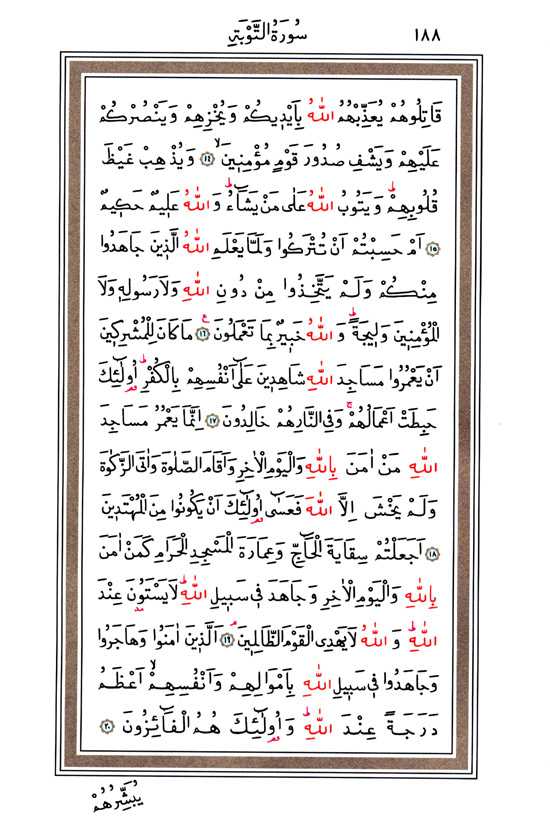 ١٨٨ سُورَةُ التَّوْبَةِ
قَاتِلُوهُمْ يُعَذِّبْهُمُ اللّٰهُ بِاَيْدٖيكُمْ وَيُخْزِهِمْ وَيَنْصُرْكُمْ
عَلَيْهِمْ وَيَشْفِ صُدُورَ قَوْمٍ مُؤْمِنٖينَۙ ١٤ وَيُذْهِبْ غَيْظَ
قُلُوبِهِمْۜ وَيَتُوبُ اللّٰهُ عَلٰى مَنْ يَشَٓاءُۜ وَاللّٰهُ عَلٖيمٌ حَكٖيمٌ
١٥ اَمْ حَسِبْتُمْ اَنْ تُتْرَكُوا وَلَمَّا يَعْلَمِ اللّٰهُ الَّذٖينَ جَاهَدُوا
مِنْكُمْ وَلَمْ يَتَّخِذُوا مِنْ دُونِ اللّٰهِ وَلَا رَسُولِهٖ وَلَا
الْمُؤْمِنٖينَ وَلٖيجَةًۜ وَاللّٰهُ خَبٖيرٌ بِمَا تَعْمَلُونَ ١٦ مَا كَانَ لِلْمُشْرِكٖينَ
اَنْ يَعْمُرُوا مَسَاجِدَ اللّٰهِ شَاهِدٖينَ عَلٰٓى اَنْفُسِهِمْ بِالْكُفْرِۜ اُو۬لٰٓئِكَ
حَبِطَتْ اَعْمَالُهُمْۚ وَفِي النَّارِ هُمْ خَالِدُونَ ١٧ اِنَّمَا يَعْمُرُ مَسَاجِدَ
اللّٰهِ مَنْ اٰمَنَ بِاللّٰهِ وَالْيَوْمِ الْاٰخِرِ وَاَقَامَ الصَّلٰوةَ وَاٰتَى الزَّكٰوةَ
وَلَمْ يَخْشَ اِلَّا اللّٰهَ فَعَسٰٓى اُو۬لٰٓئِكَ اَنْ يَكُونُوا مِنَ الْمُهْتَدٖينَ
١٨ اَجَعَلْتُمْ سِقَايَةَ الْحَٓاجِّ وَعِمَارَةَ الْمَسْجِدِ الْحَرَامِ كَمَنْ اٰمَنَ
بِاللّٰهِ وَالْيَوْمِ الْاٰخِرِ وَجَاهَدَ فٖي سَبٖيلِ اللّٰهِۜ لَا يَسْتَوُ۫نَ عِنْدَ
اللّٰهِۜ وَاللّٰهُ لَا يَهْدِي الْقَوْمَ الظَّالِمٖينَۢ ١٩ اَلَّذٖينَ اٰمَنُوا وَهَاجَرُوا
وَجَاهَدُوا فٖي سَبٖيلِ اللّٰهِ بِاَمْوَالِهِمْ وَاَنْفُسِهِمْۙ اَعْظَمُ
دَرَجَةً عِنْدَ اللّٰهِۜ وَاُو۬لٰٓئِكَ هُمُ الْفَٓائِزُونَ ٢٠
يُبَشِّرُهُمْ